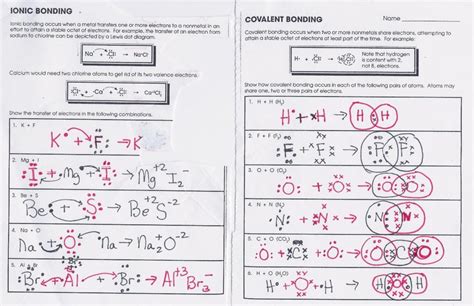 IONIC BONDING
Ionic bonding occurs when a metal transfers one or more electrons to a nonmetal in an
effort to attain a stable octet of electrons. For example, the transfer of an electron from
sodium to chlorine can be depicted by a Lewis dot diagram.
Calcium would need two chlorine atoms to get rid of its two valence electrons.
Show the transfer of electrons in the following combinations.
1. K + F
K + F → K
2. Mg + I
I + Mg + I → Mg+2 I2-
3. Be + S
Be + S → Be+2 S-2
4. Na + O
Na + O → Na+2 O-2
5. Al + Br
Br
Br + Al + Br → Al+3 Br3-
COVALENT BONDING
Name
Covalent bonding occurs when two or more nonmetals share electrons, attempting to
attain a stable octet of electrons at least part of the time. For example:
Note that hydrogen
is content with 2,
not 8, electrons.
Show how covalent bonding occurs in each of the following pairs of atoms. Atoms may
share one, two or three pairs of electrons.
1. H + H (H2)
H + H → H H
2. F + F (F2)
F + F → F F
3. O + O (O2)
O + O → O O
4. N + N (N2)
N + N → N N
5. C + O (CO2)
O + C + O → O C O
6. H + O (H2O)
H + O + H → H O H